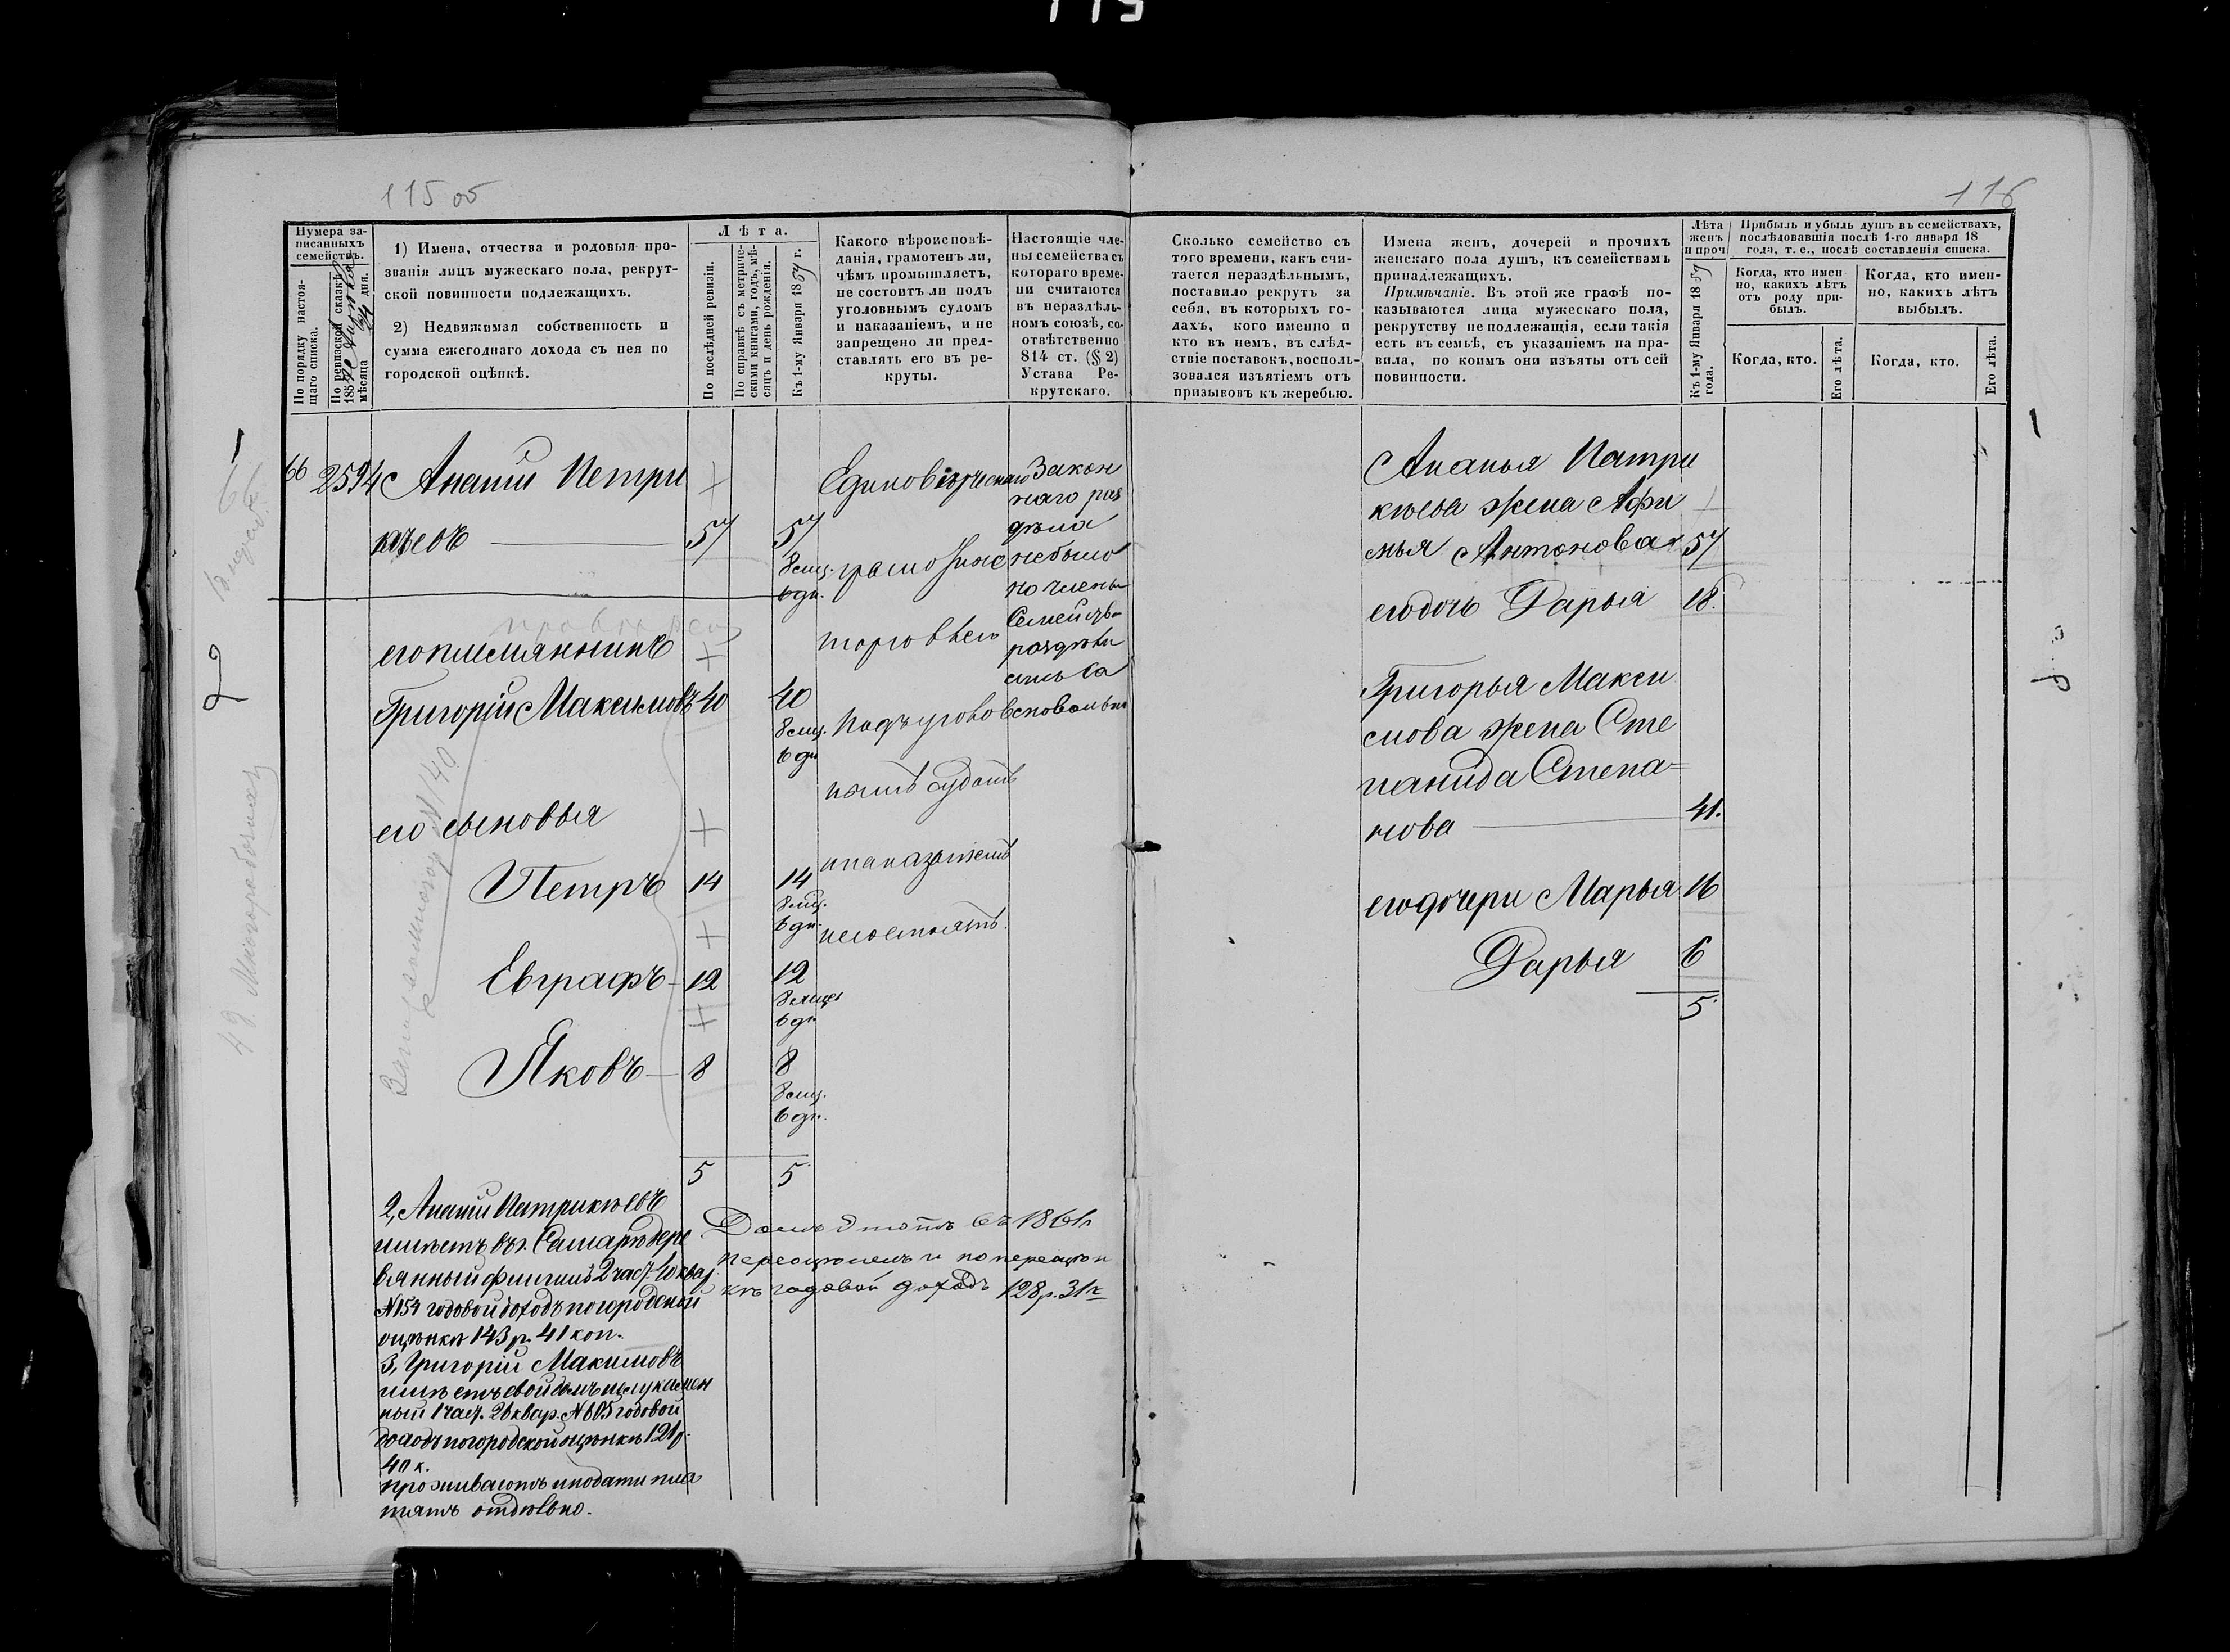 115
115 об
116
Нумера за-
писанныхъ
семействъ.
По порядку настоя-
щаго списка.
По ревизской сказкѣ
185
мѣсяца дня.
1) Имена, отчества и родовыя про-
званія лицъ мужескаго пола, рекрут-
ской повинности подлежащихъ.
2) Недвижимая собственность и
сумма ежегоднаго дохода съ нея по
городской оцѣнкѣ.
Лѣта.
По послѣдней ревизіи.
По справкѣ съ метриче-
скими книгами, годъ, мѣ-
сяцъ и день рожденія.
Къ 1-му Января 1859 г.
Какого вѣроисповѣ-
данія, грамотенъ ли,
чѣмъ промышляетъ,
не состоитъ ли подъ
уголовнымъ судомъ
и наказаніемъ, и не
запрещено ли пред-
ставлять его въ ре-
круты.
Настоящіе чле-
ны семейства съ
котораго време-
ни считаются
въ нераздѣль-
номъ союзѣ, со-
отвѣтственно
814 ст. (§ 2)
Устава Ре-
крутскаго.
66 2594 Ананій Петри
кѣевъ 57 57
8 мц.
6 дн.
его племянникъ
Григорій Максимовъ 40 40
8 мц.
6 дн
его сыновья
Петръ 14 14
8 мц.
6 дн.
Евграфъ 12 12
8 мцъ
6 дн
Яковъ 8 8
8 мц.
6 дн.
5 5
Единовѣрческаго
грамотные
торговлею
Подъ уголов
нымъ судомъ
и наказаніемъ
несостоятъ.
Закон
наго раз
дѣла
небыло
но члены
Семейства
раздѣли
лись са
мовольно
2, Ананій Патрикѣевъ
имѣетъ въ г. Самарѣ дере
вянный флигиль 2 част. 40 квар.
№ 154 годовой доходъ погородской
оцѣнкѣ 143 р. 41 коп.
3, Григорій Максимовъ
имѣетъ свой домъ полукамен
ный 1 част. 26 квар. № 605 годовой
доходъ погородской оцѣнкѣ 121 р.
40 к.
проживаютъ и подати пла
тятъ отдѣльно.
Домъ этотъ въ 1861 г
переоцѣненъ и по переоцѣн
кѣ годовой доходъ 128 р. 31 к
Сколько семейство съ
того времени, какъ счи-
тается нераздѣльнымъ,
поставило рекрутъ за
себя, въ которыхъ го-
дахъ, кого именно и
кто въ немъ, въ слѣд-
ствіе поставокъ, восполь-
зовался изъятіемъ отъ
призывовъ къ жеребью.
Имена женъ, дочерей и прочихъ
женскаго пола душъ, къ семействамъ
принадлежащихъ.
Примѣчаніе. Въ этой же графѣ по-
казываются лица мужескаго пола,
рекрутству не подлежащія, если такія
есть въ семьѣ, съ указаніемъ на пра-
вила, по коимъ они изъяты отъ сей
повинности.
Лѣта
женъ
и проч
Къ 1-му Января 1859
года.
Прибыль и убыль душъ въ семействахъ,
послѣдовавшія послѣ 1-го января 18
года, т. е., послѣ составленія списка.
Когда, кто имен
но, какихъ лѣтъ
отъ роду при-
былъ.
Когда, кто имен-
но, какихъ лѣтъ
выбылъ.
Когда, кто.
Его лѣта.
Когда, кто.
Его лѣта.
Ананья Патри
кѣева жена Афи
мья Антонова 57
его дочь Дарья 18.
Григорья Макси
мова жена Сте
панида Степа=
нова 41.
его дочери Марья 16
Дарья 6
5